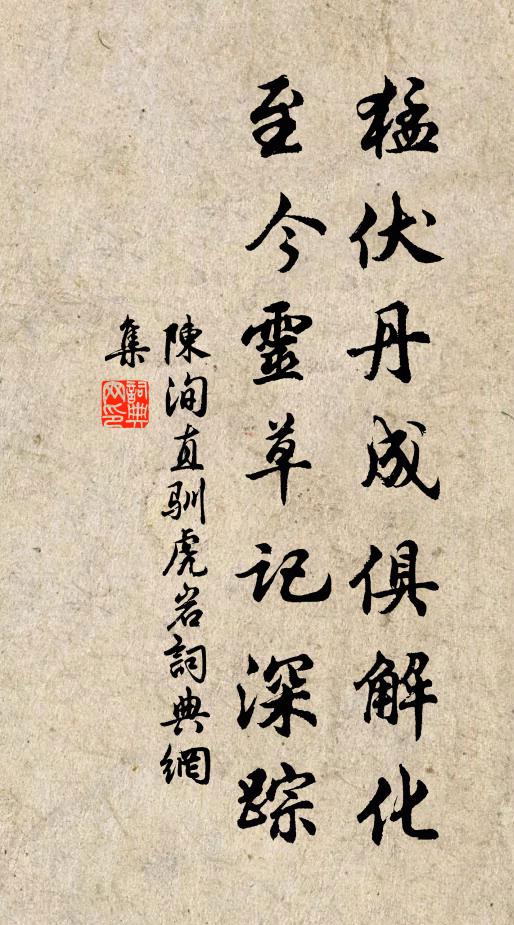 猛伏丹成俱解化
至今靈草記深踪
陳洵直馴虎岩詞典網
集
詞典
网印